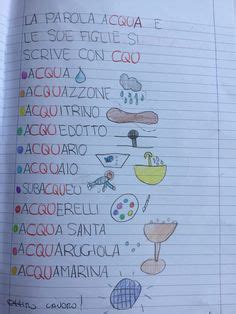 LA PAROLA ACQUA E
LE SUE FIGLIE SI
SCRIVE CON CQU
ACQUA
ACQUAZZONE
ACQUITRINO
ACQUEDOTTO
ACQUARIO
ACQUAIO
SUBACQUEO
ACQUERELLI
ACQUA SANTA
ACQUARUGIOLA
ACQUAMARINA
OTTIMO LAVORO!